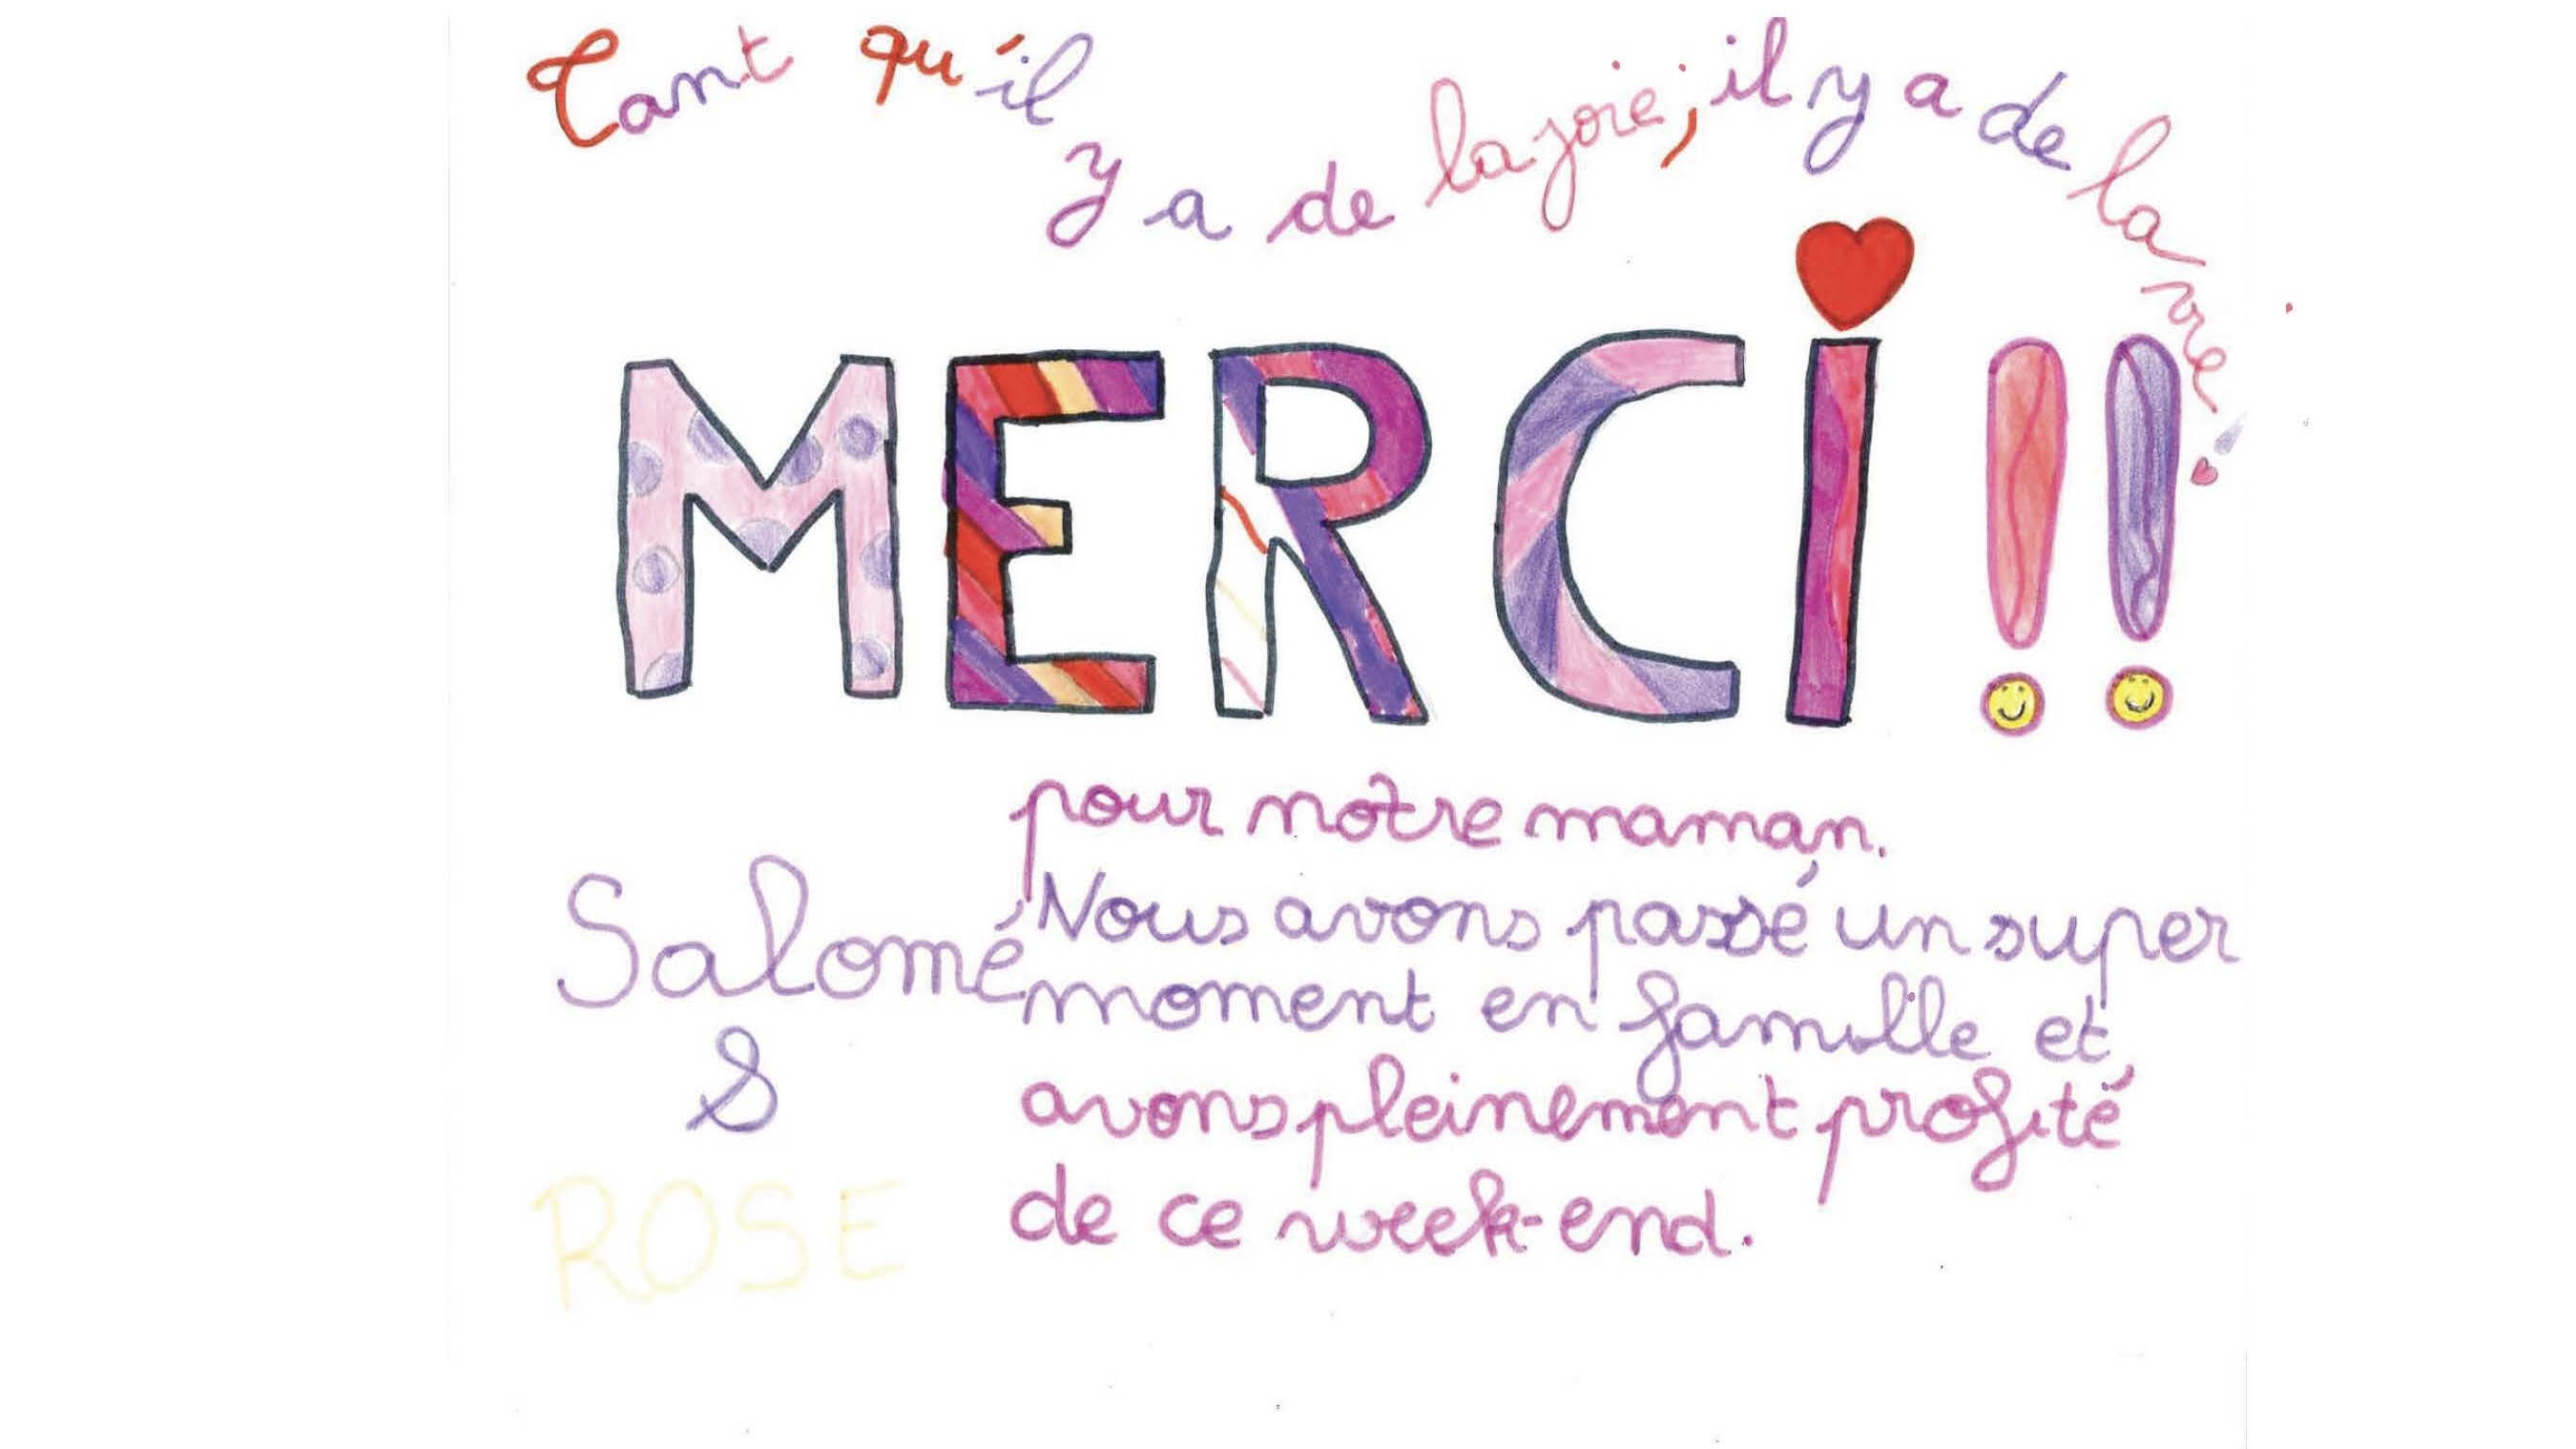 Tant qu'il y a de la joie, il y a de la vie !
MERCI !!
pour notre maman.
Nous avons passé un super
moment en famille et
avons pleinement profité
de ce week-end.
Salomé
&
ROSE